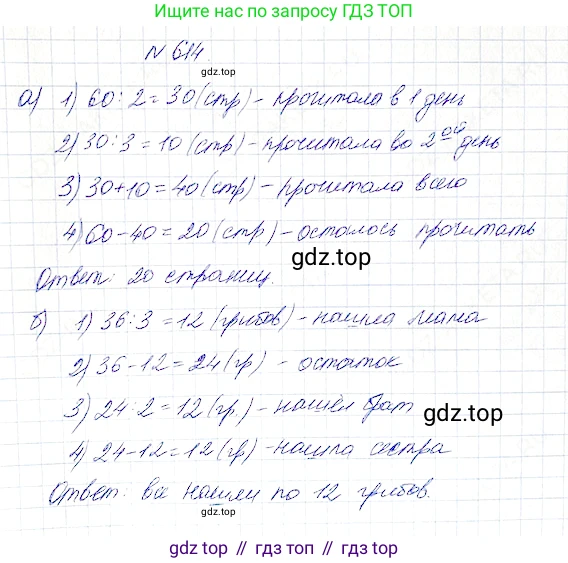 Ищите решение по запросу ГДЗ ТОП
N 614.
gdz.top
а) 1) 60 : 2 = 30 (стр) - прочитала в 1 день
2) 30 : 3 = 10 (стр) - прочитала во 2ой день
3) 30 + 10 = 40 (стр) - прочитала всего
4) 60 - 40 = 20 (стр) - осталось прочитать
gdz.top
Ответ: 20 страниц.
б) 1) 36 : 3 = 12 (грибов) - нашла мама
2) 36 - 12 = 24 (гр) - остаток
3) 24 : 2 = 12 (гр.) - нашёл брат
gdz.top
4) 24 - 12 = 12 (гр) - нашла сестра
Ответ: все нашли по 12 грибов.
gdz.top
gdz top // гдз топ // gdz.top